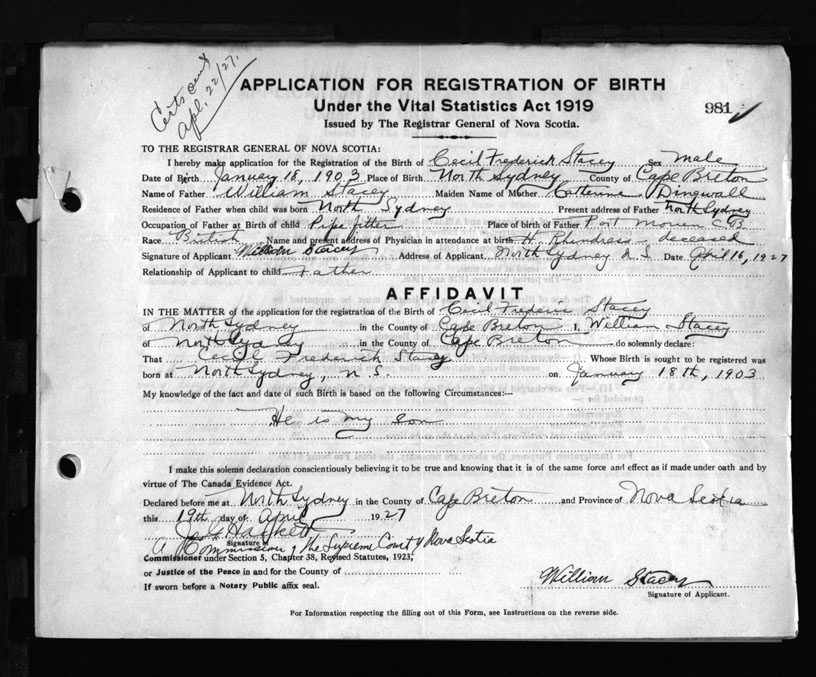 Certs sent
Apl. 22/27.
APPLICATION FOR REGISTRATION OF BIRTH
Under the Vital Statistics Act 1919
981
Issued by The Registrar General of Nova Scotia.
TO THE REGISTRAR GENERAL OF NOVA SCOTIA:
I hereby make application for the Registration of the Birth of Cecil Frederick Stacey Sex Male
Date of Birth January 18, 1903 Place of Birth North Sydney County of Cape Breton
Name of Father William Stacey Maiden Name of Mother Catherine Dingwall
Residence of Father when child was born North Sydney Present address of Father North Sydney
Occupation of Father at Birth of child Pipe fitter Place of birth of Father Port Morien C.B.
Race British Name and present address of Physician in attendance at birth H. deceased
Signature of Applicant William Stacey Address of Applicant North Sydney N.S. Date April 16, 1927
Relationship of Applicant to child Father
AFFIDAVIT
IN THE MATTER of the application for the registration of the Birth of Cecil Frederick Stacey
of North Sydney in the County of Cape Breton I, William Stacey
of North Sydney in the County of Cape Breton do solemnly declare:
That Cecil Frederick Stacey Whose Birth is sought to be registered was
born at North Sydney, N.S. on January 18th, 1903
My knowledge of the fact and date of such Birth is based on the following Circumstances:—
He is my son
I make this solemn declaration conscientiously believing it to be true and knowing that it is of the same force and effect as if made under oath and by
virtue of The Canada Evidence Act.
Declared before me at North Sydney in the County of Cape Breton and Province of Nova Scotia
this 19th day of April 1927
Signature
A Commissioner of the Supreme Court of Nova Scotia
Commissioner under Section 5, Chapter 38, Revised Statutes, 1923,
or Justice of the Peace in and for the County of
William Stacey
If sworn before a Notary Public affix seal.
Signature of Applicant.
For Information respecting the filling out of this Form, see Instructions on the reverse side.